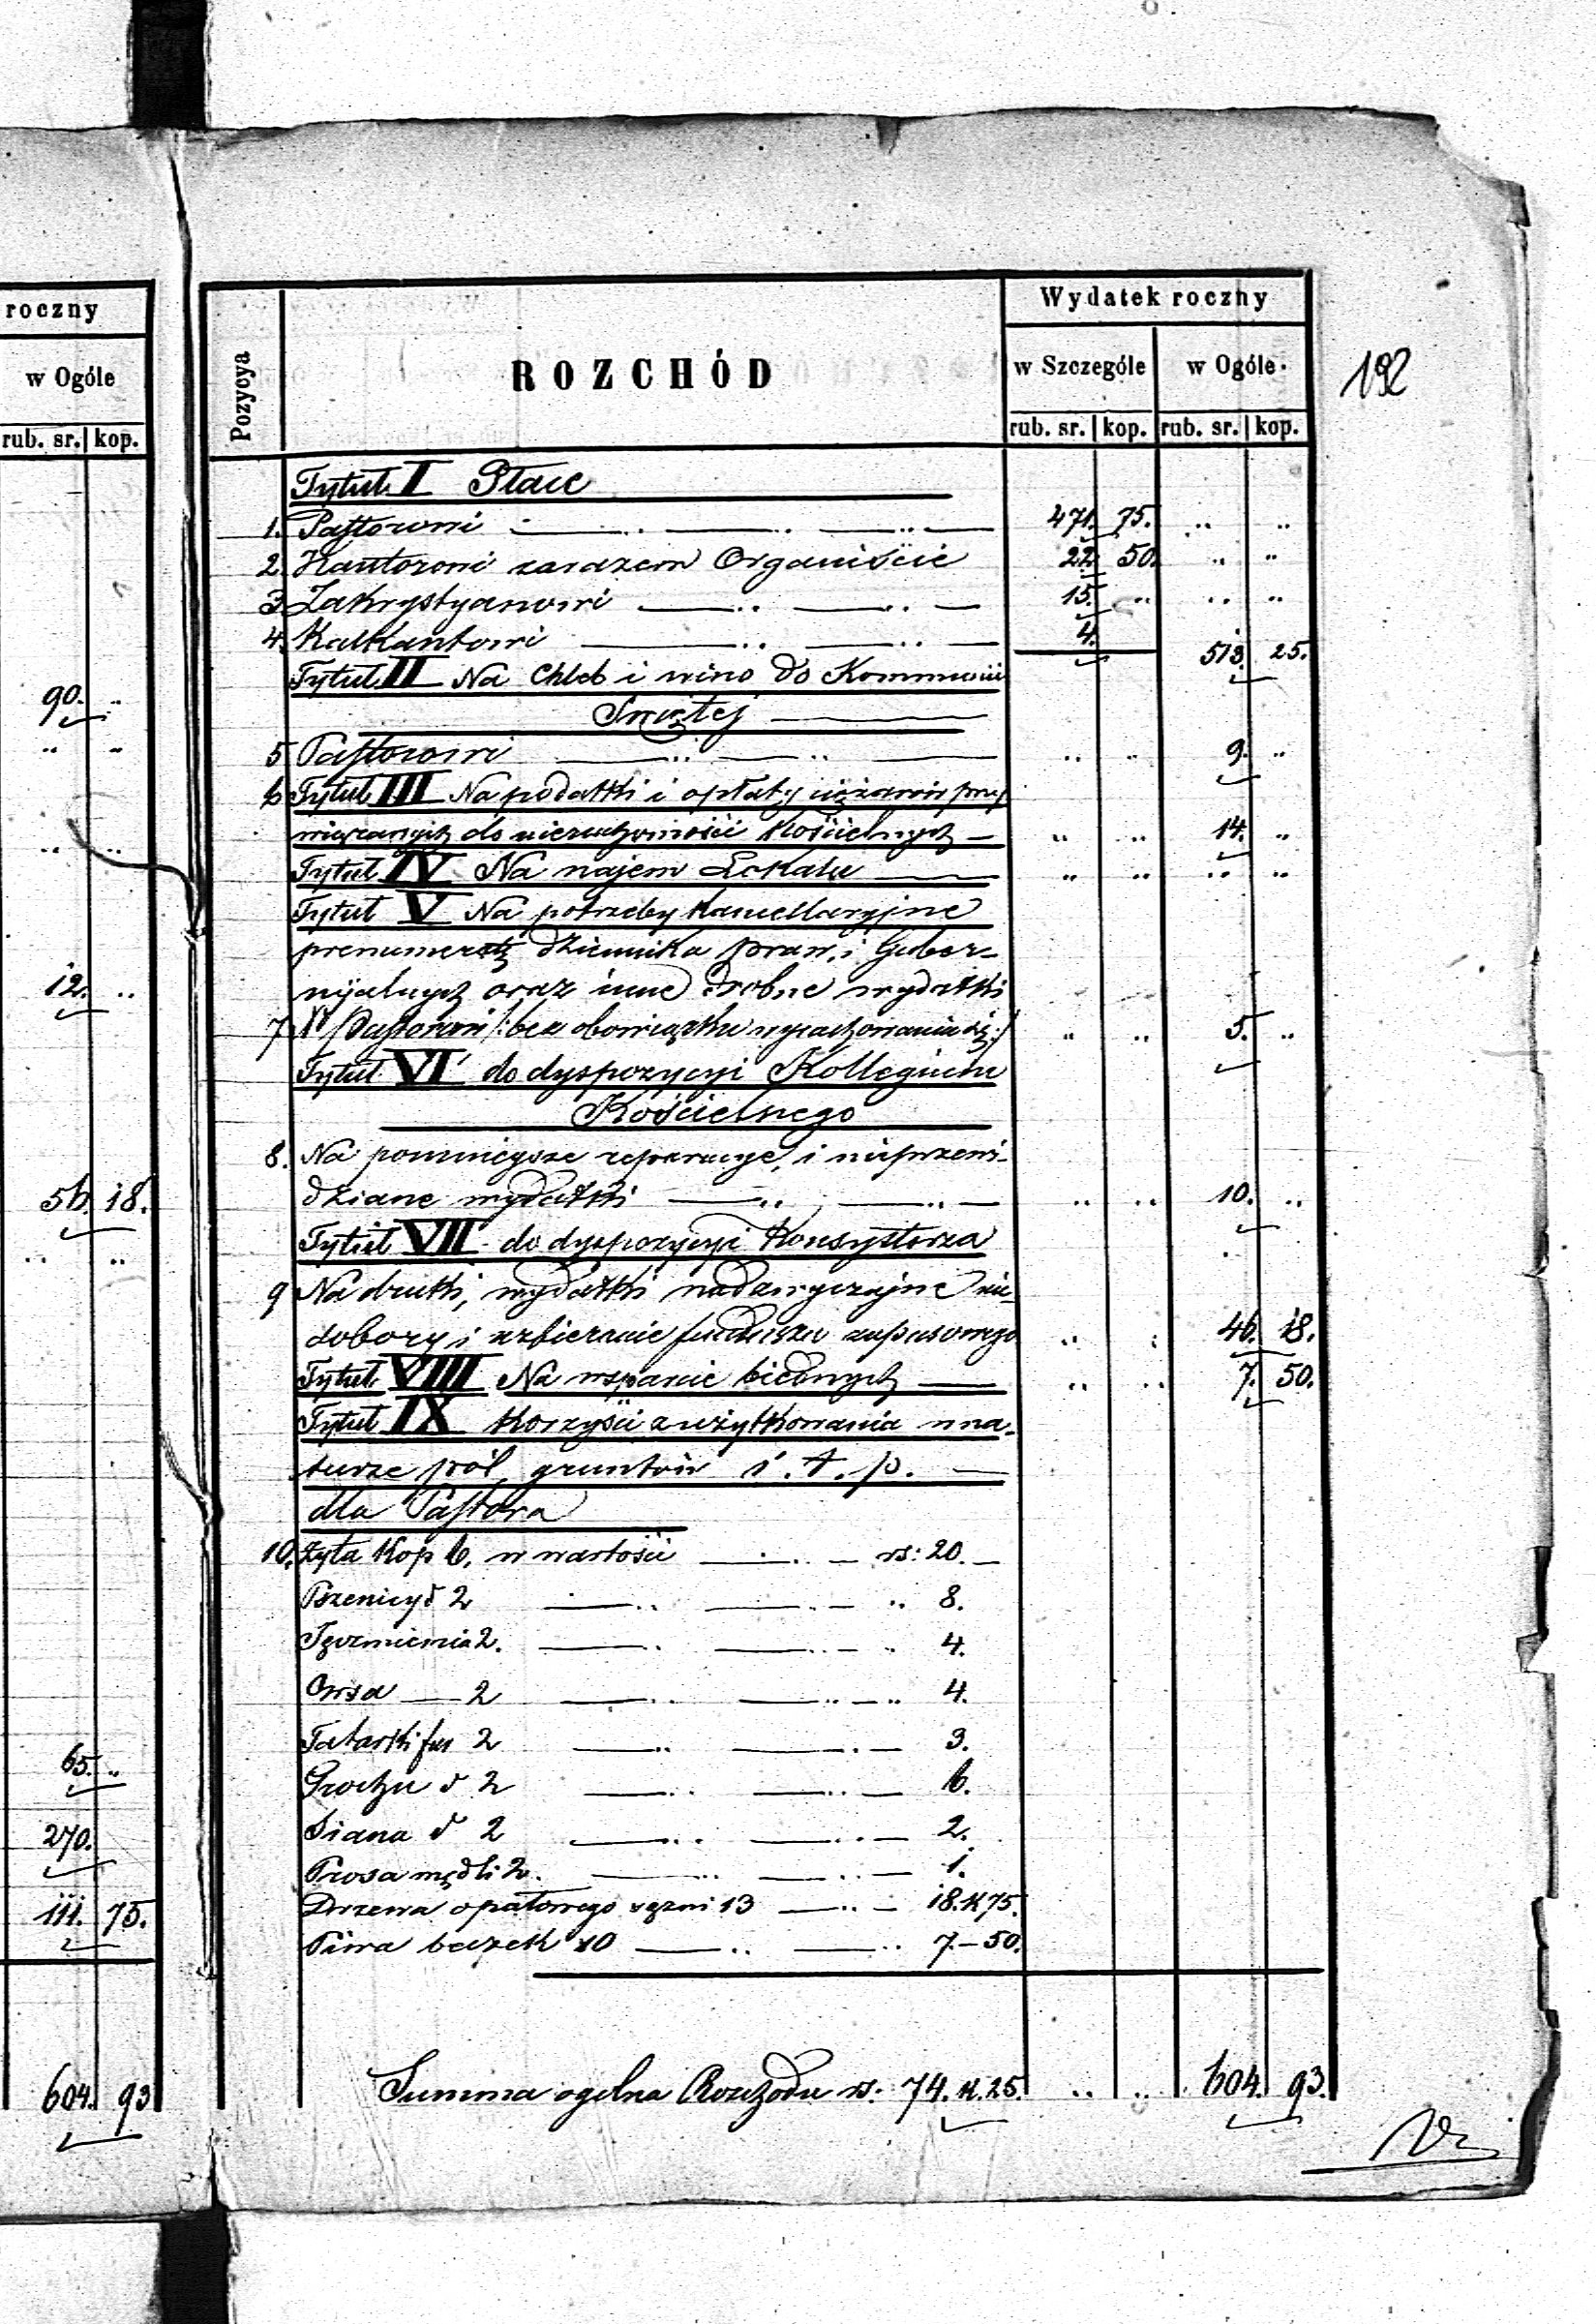 roczny
w Ogóle
rub. sr. kop.
90. ..
.. ..
.. ..
12. ..
56. 18.
.. ..
65. ..
270.
111. 75.
604. 93
192
Pozycya
ROZCHÓD
Wydatek roczny
w Szczególe w Ogóle.
rub. sr. kop. rub. sr. kop.
Tytuł I Płace
1. Pastorowi 471. 75. .. ..
2. Kantorowi zarazem Organiście 22. 50. .. ..
3. Zakrystyanowi 15. .. .. ..
4. Kalkantowi 4. 513. 25.
Tytuł II Na Chleb i wino do Kommunii
Świętej
5 Pastorowi .. .. 9. ..
6 Tytuł III Na podatki i opłaty ciężarów przy
wiązanych do nieruchomości Kościelnych — .. .. 14. ..
Tytuł IV Na najem Lokalu .. .. .. ..
Tytuł V Na potrzeby Kancellaryjne
prenumeratę dziennika praw, i Guber-
nijalnych oraz inne drobne wydatki
7 Pastorowi /:bez obowiązku wyrachowania się:/ .. .. 5. ..
Tytuł VI do dyspozycyi Kollegium
Kościelnego
8. Na pomniejsze reparacye, i nieprzewi-
dziane wydatki .. .. 10. ..
Tytuł VII do dyspozycyi Konsystorza
9 Na druki, wydatki nadzwyczajne nie-
dobory i uzbieranie funduszu zapasowego .. .. 46. 18.
Tytuł VIII Na wsparcie biednych .. .. 7. 50.
Tytuł IX Korzyści z użytkowania w na-
turze pól, gruntów i. t. p. —
dla Pastora
10. Żyta Kop 6. w wartości rs: 20. —
Pszenicy d 2 .. 8.
Jęczmienia 2. .. 4.
Owsa — 2 .. 4.
Tatarki fur 2 — 3.
Grochu d 2 — 6.
Siana d 2 — 2.
Prosa mędli 2. — 1.
Drzewa opałowego sążni 13 — 18. K 75.
Piwa beczek 10 .. 7. — 50.
Summa ogólna Rozchodu rs. 74. K. 25. .. .. 604. 93.